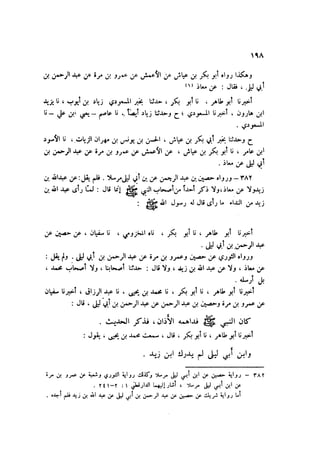 ١٩٨
وهكذا رواه أبو بكر بن عياش عن الأعمش عن عمرو بن مرة عن عبد الرحمن بن
أبي ليلى ، فقال : عن معاذ (١)
أخبرنا أبو طاهر ، نا أبو بكر ، حدثنا بخبر المسعودي زياد بن أيوب ، نا يزيد
ابن هارون ، أخبرنا المسعودي ؛ ح وحدثنا زياد أيضاً ، نا عاصم – يعني ابن علي – نا
المسعودي .
ح وحدثنا بخبر أبي بكر بن عياش ، الحسن بن يونس بن مهران الزيات ، نا الأسود
ابن عامر ، نا أبو بكر بن عياش ، عن الأعمش عن عمرو بن مرة عن عبد الرحمن بن
أبي ليلى عن معاذ .
٣٨٢ – ورواه حصين بن عبد الرحمن عن بن أبي ليلى مرسلا . فلم يقل : عن عبد الله بن
زيد ولا عن معاذ ، ولا ذكر أحداً من أصحاب النبي ﷺ إنما قال : لمّا رأى عبد الله بن
زيد من النداء ما رأى قال له رسول الله ﷺ :
أخبرنا أبو طاهر ، نا أبو بكر ، ناه المخزومي ، نا سفيان ، عن حصين عن
عبد الرحمن بن أبي ليلى .
ورواه الثوري عن حصين وعمرو بن مرة عن عبد الرحمن بن أبي ليلى . ولم يقل :
عن معاذ ، ولا عن عبد الله بن زيد ، ولا قال : حدثنا أصحابنا ، ولا أصحاب محمد ،
بل أرسله .
أخبرنا أبو طاهر ، نا أبو بكر ، نا محمد بن يحيى ، نا عبد الرزاق ، أخبرنا سفيان
عن عمرو بن مرة وحصين بن عبد الرحمن عن عبد الرحمن بن أبي ليلى ، قال :
كان النبي ﷺ قد أهمه الأذان ، فذكر الحديث .
أخبرنا أبو طاهر ، نا أبو بكر ، قال ، سمعت محمد بن يحيى ، يقول :
وابن أبي ليلى لم يدرك ابن زيد .
٣٨٢ – رواية حصين عن ابن أبي ليلى مرسلا وكذلك رواية الثوري وشعبة عن عمرو بن مرة
عن ابن أبي ليلى مرسلا ، أشار إليهما الدارقطني ١ : ٢–٢٤١ .
أما رواية شريك عن حصين عن عبد الرحمن بن أبي ليلى عن عبد الله بن زيد فلم أجده .